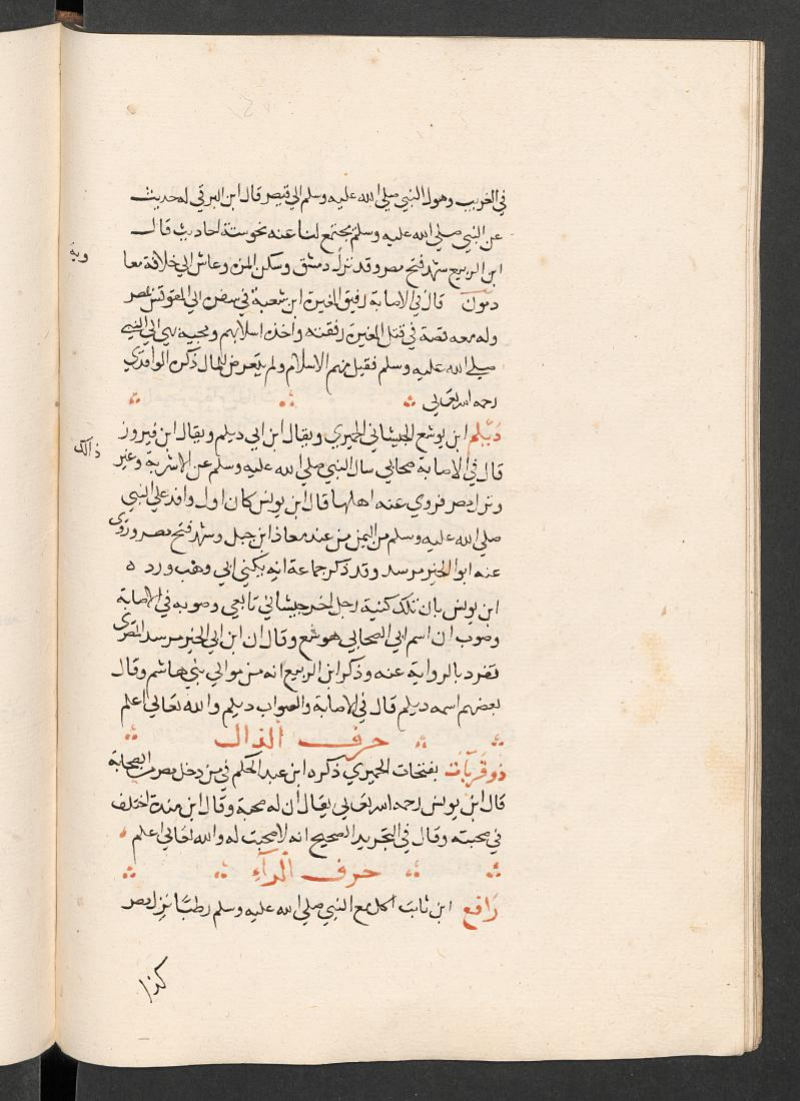 في الغريب وهول النبي صلي الله عليه وسلم الي قيصر قال ابن البرقي له حديث
عن النبي صلي الله عليه وسلم يجتمع لنا عنه نحو ستة احاديث قال
ابن الربيع شهد فتح مصر وقد نزل دمشق وسكن المزه وعاش الي خلافة معا
دمون قال في الاصابة رفيق المغيرة ابن شعبة في سفره الي المقوقس بمصر
وله معه قصة في قتل المغيرة رفقته واخذه اسلابهم ومجيه بهي الي النبي
صلي الله عليه وسلم فقبل منهم الاسلام ولم يتعرض للمال ذكره الواقدي
رحمه الله تعالي
ديلم ابن يوشع الجيشاني الحميري ويقال ابن ابي ديلم ويقال ابن فيروز
قال في الاصابة صحابي سال النبي صلي الله عليه وسلم عن الاشربة وغير
ونزل مصر فروي عنه اهلها قال ابن يونس كان اول وافد علي النبي
صلي الله عليه وسلم من اليمن من عند معاذ ابن جبل وشهد فتح مصر وروي
عنه ابو الخير مرسد وقد ذكر جماعة انه يكني ابي وهب ورد ه
ابن يونس بان تلك كنية رجل اخر جيشاني تابعي وصوبه في الاصابة
وصوب ان اسم ابي الصحابي هوشع وقال ان ابن ابي الخير مرسد المصري
تفرد بالرواية عنه وذكر ابن الربيع انه من موالي بني هاشم وقال
بعضهم اسمه ديلم قال في الاصابة والصواب ديلم والله تعالي اعلم
حرف الذال
ذو قربات بفتحات الحميري ذكره ابن عبد الحكم في من دخل مصر من الصحابة
قال ابن يونس رحمه الله تعالي يقال ان له صحبة وقال ابن مندة اختلف
في صحبته وقال في التجريد الصحيح انه لا صحبت له والله تعالي اعلم
حرف الرآء
رافع ابن ثابت اكل مع النبي صلي الله عليه وسلم رطبا نزل مصر
كذا
وية
ذالك